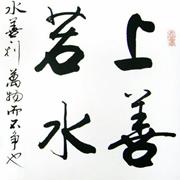 上善
若水
水善利萬物而不争也